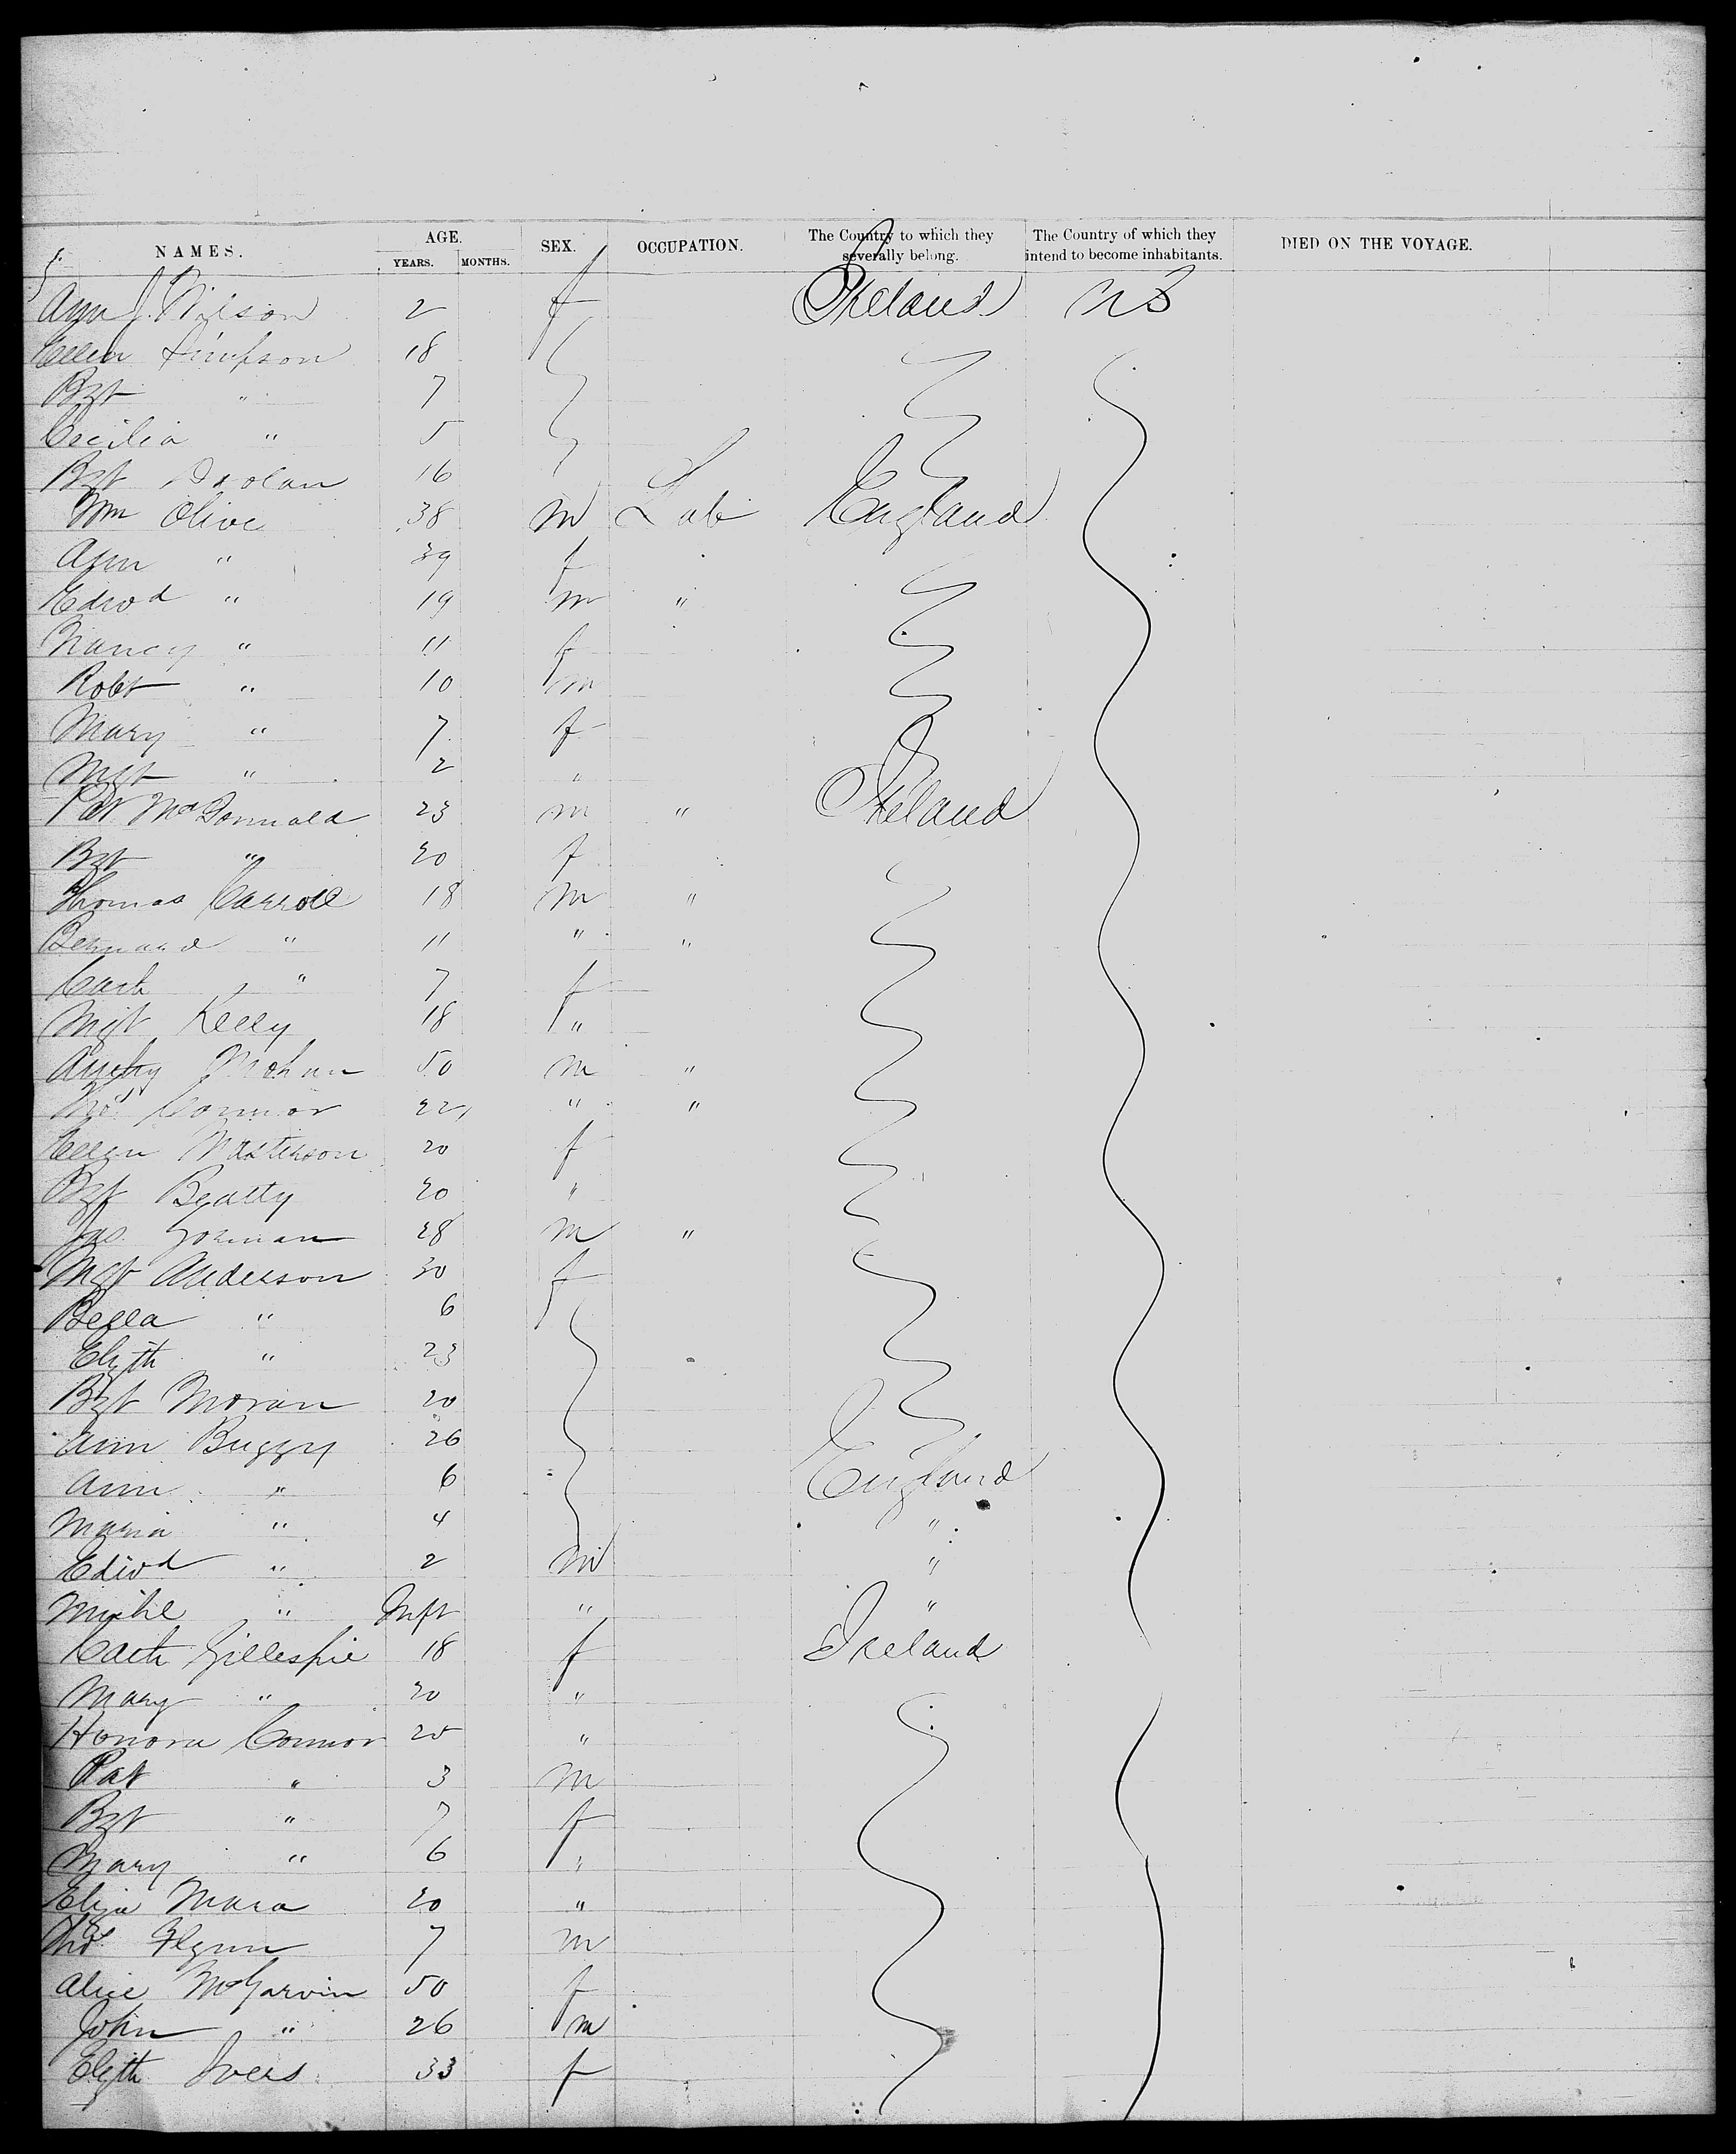 NAMES. AGE. YEARS. MONTHS. SEX. OCCUPATION. The Country to which they severally belong. The Country of which they intend to become inhabitants. DIED ON THE VOYAGE.
Ann J. Wilson 2 f Ireland US
Ellen Simpson 18
Bgt " 7
Cecilia " 5
Bgt Dolan 16
Wm Olive 38 m Lab England
Ann " 39 f
Edwd " 19 m "
Nancy " 11 f
Robt " 10 m
Mary " 7 f
Mgt " 2 "
Pat McDonnald 23 m " Ireland
Bgt " 20 f
Thomas Carroll 18 m "
Bernard " 11 " "
Cath " 7 f
Mgt Kelly 18 "
Anthy Mohan 50 m "
Thos Connor 22 " "
Ellen Masterson 20 f
Bgt Beatty 20 "
Jas Gorman 28 m "
Mgt Anderson 30 f
Bella " 6
Elizth " 23
Bgt Moran 20
Ann Buggy 26
Ann " 6 England
Maria " 4 "
Edwd " 2 m "
Michl " Inft " "
Cath Gillespie 18 f Ireland
Mary " 20 "
Honora Connor 25 "
Pat " 3 m
Bgt " 7 f
Mary " 6 "
Eliza Mara 20 "
Thos Flynn 7 m
Alice McGarvin 50 f
John " 26 m
Elizth Ivers 33 f